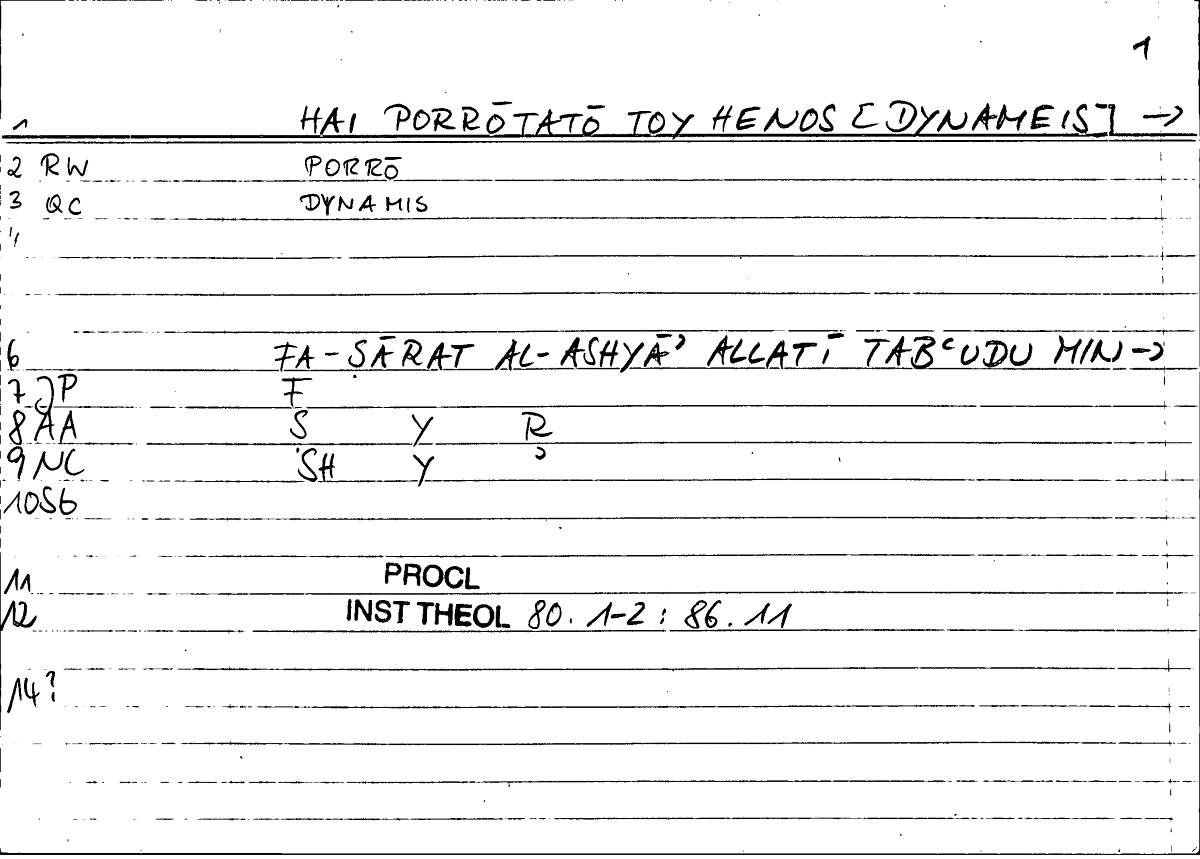 1
1 HAI PORRŌTATŌ TOY HENOS [DYNAMEIS] →
2 RW PORRŌ
3 QC DYNAMIS
4
6 FA-ṢĀRAT AL-ASHYĀʾ ALLATĪ TABʿUDU MIN→
7 JP F
8 AA Ṣ Y R
9 NC SH Y ʾ
10 Sb
11 PROCL
12 INST THEOL 80. 1-2 : 86. 11
14?